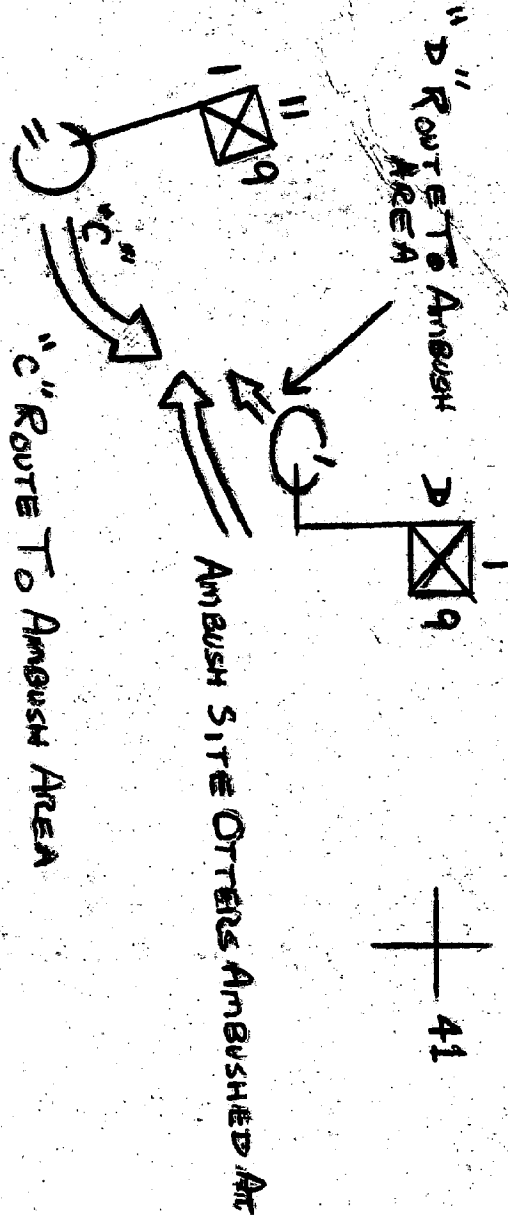 D 9
41
"D" ROUTE TO AMBUSH
AREA
1 9
AMBUSH SITE OTTERS AMBUSHED AT
"C"
"C" ROUTE TO AMBUSH AREA